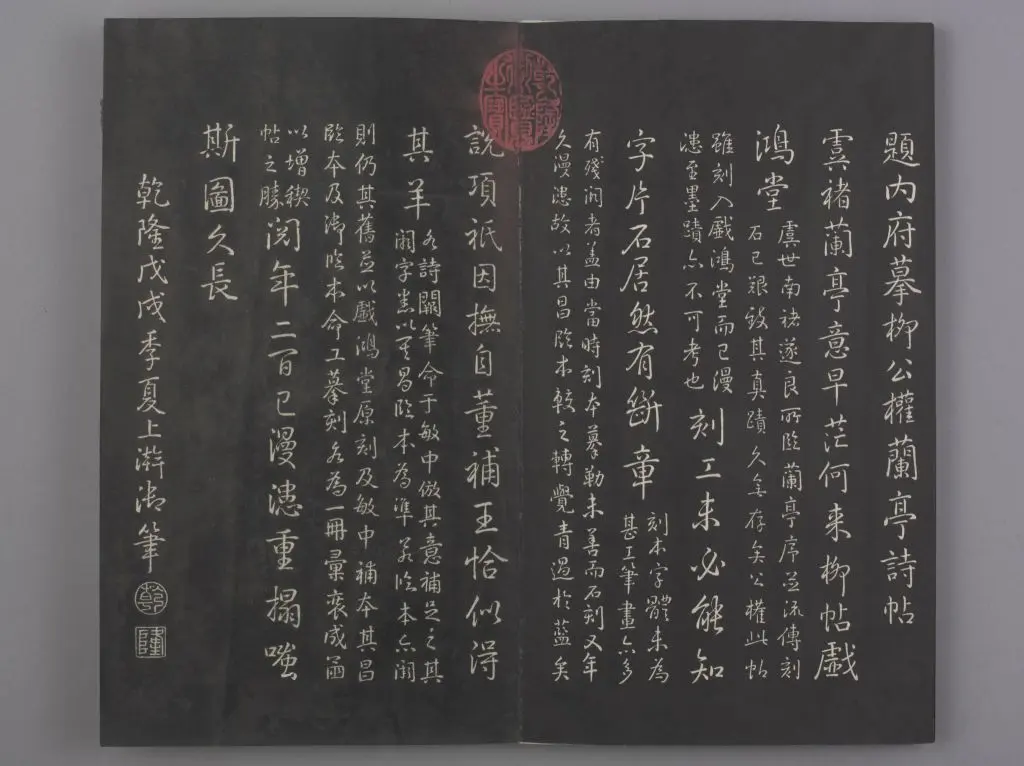 題内府摹柳公權蘭亭詩帖
虞褚蘭亭意早茫何来柳帖戲
鴻堂
虞世南褚遂良所臨蘭亭序並流傳刻
石已艱致其真蹟久無存矣公權此帖
雖刻入戲鴻堂而已漫
漶至墨蹟亦不可考也
刻工未必能知
字片石居然有斷章
刻本字體未為
甚工筆畫亦多
有殘闕者盖由當時刻本摹勒未善而石刻又年
久漫漶故以其昌臨本較之轉覺青過於藍矣
說項祇因撫自董補王恰似得
其羊
各詩闕筆命于敏中倣其意補足之其
闕字悉以其昌臨本為準若臨本亦闕
則仍其舊並以戲鴻堂原刻及敏中補本其昌
臨本及御臨本命工摹刻各為一冊彙裒成函
以增稧
帖之勝
閲年二百已漫漶重搨嗤
斯圖久長
乾隆戊戌季夏上澣御筆
乾
隆
乾隆御覽之寶